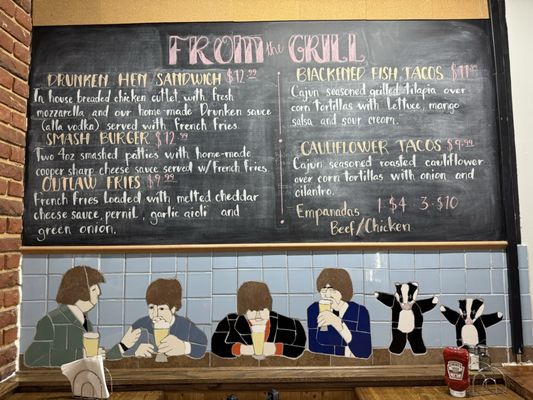 FROM the GRILL
DRUNKEN HEN SANDWICH $12.99
In house breaded chicken cutlet with fresh
mozzarella and our home-made Drunken sauce
(alla vodka) served with French fries.
SMASH BURGER $12.99
Two 4oz smashed patties with home-made
cooper sharp cheese sauce served w/French fries.
OUTLAW FRIES $9.99
French Fries Loaded with melted cheddar
cheese sauce, pernil, garlic aioli and
green onion.
BLACKENED FISH TACOS $11.99
Cajun seasoned grilled tilapia over
corn tortillas with lettuce, mango
salsa and sour cream.
CAULIFLOWER TACOS $9.99
Cajun seasoned roasted cauliflower
over corn tortillas with onion and
cilantro.
Empanadas 1.$4 3.$10
Beef/Chicken